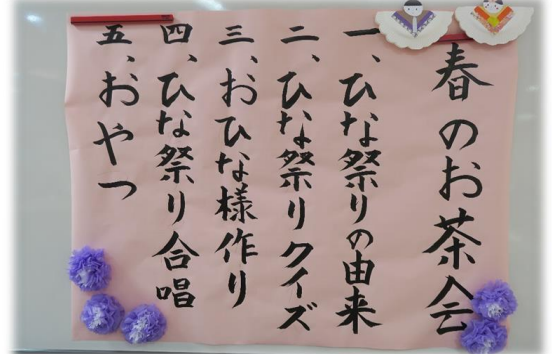 春のお茶会
一、ひな祭りの由来
二、ひな祭りクイズ
三、おひな様作り
四、ひな祭り合唱
五、おやつ